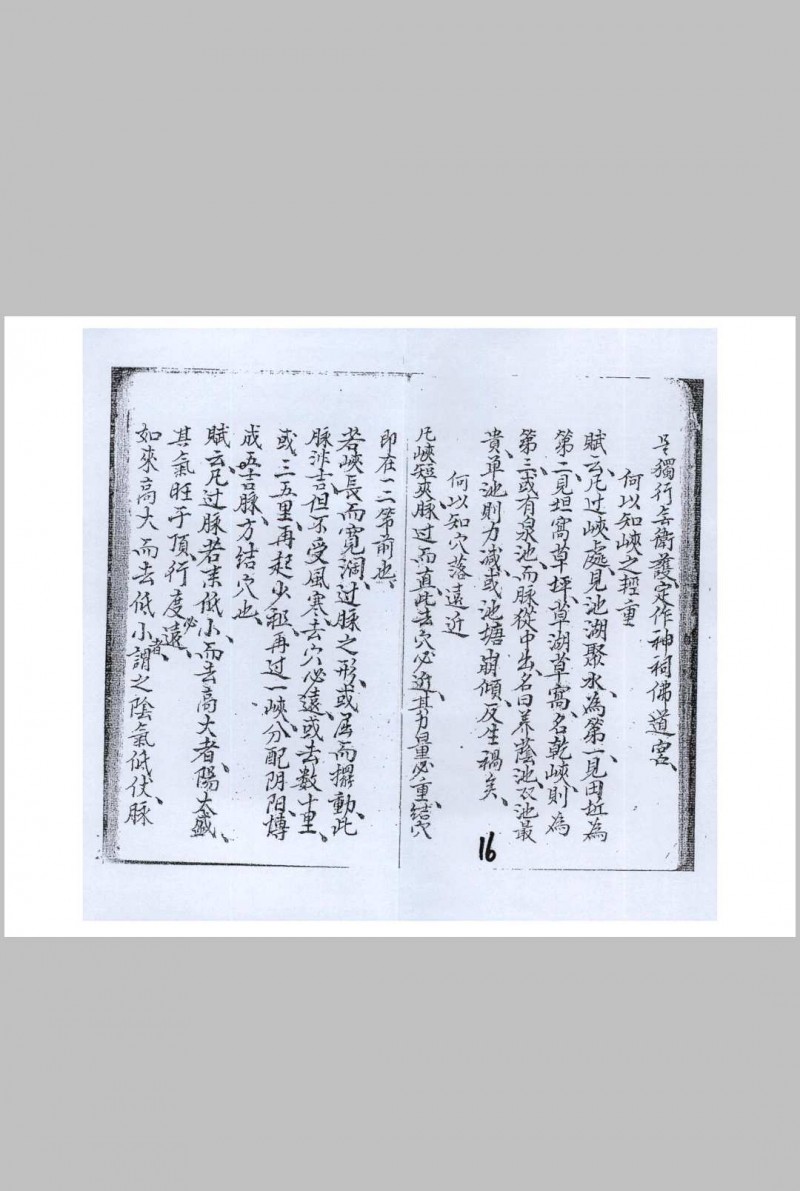 是獨行無衛護、定作神祠佛道宮、
何以知峽之輕重
賦云、凡过峽處、見池湖聚水、為第一見田坵為
第二見坦窩草坪草湖草窩、名乾峽則為
第三或有泉池、而脉從中出、名曰养蔭池、双池最
貴、单池則力减、或池塘崩傾、反生禍矣、
何以知穴落遠近
凡峽短夾、脉过而直、此去穴必近、其力量必重、结穴
即在一二節前也、
若峽長而寬濶、过脉之形、或屈而擺動、此
脉非吉、但不受風寒、去穴必遠、或去数十里、
或三五里、再起少祖再过一峽、分配阴阳、慱
成吉脉、方结穴也、
賦云凡过脉若来低小、而去高大者、陽大盛、
其氣旺于頂、行度必遠、
如來高大而去低小者、謂之陰氣低伏、脉
16